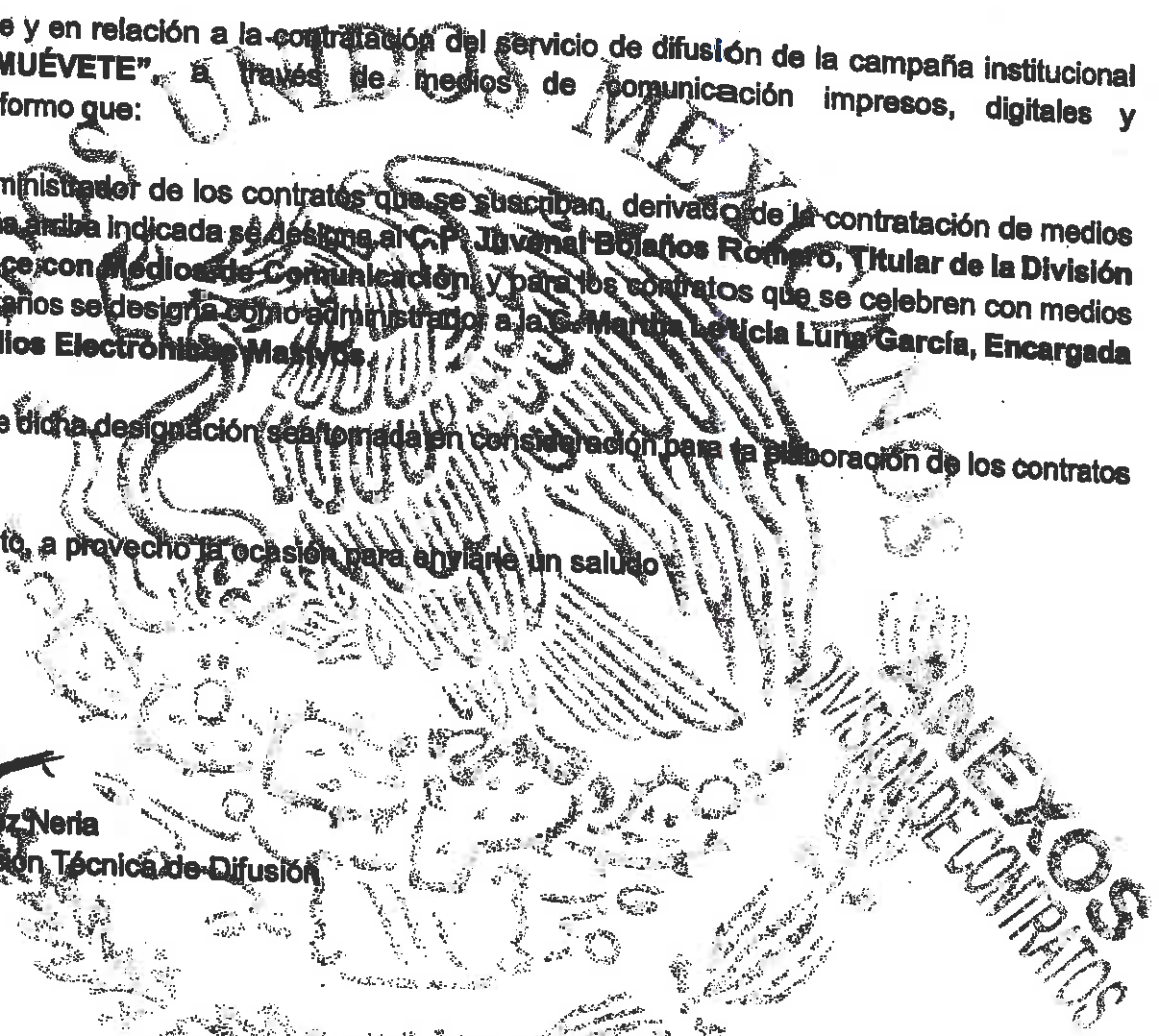 e y en relación a la contratación del servicio de difusión de la campaña institucional
MUÉVETE", a través de medios de comunicación impresos, digitales y
formo que:
ministrador de los contratos que se suscriban, derivado de la contratación de medios
ña arriba indicada se designa al C.P. Juvenal Bolaños Romero, Titular de la División
ce con Medios de Comunicación, y para los contratos que se celebren con medios
arios se designa como administrador a la C. Martha Leticia Luna García, Encargada
dios Electrónicos Masivos.
e dicha designación sea tomada en consideración para la elaboración de los contratos
to, a provecho la ocasión para enviarle un saludo
z Neria
ión Técnica de Difusión
OS UNIDOS MEXICANOS
ANEXOS
DIVISIÓN DE CONTRATOS